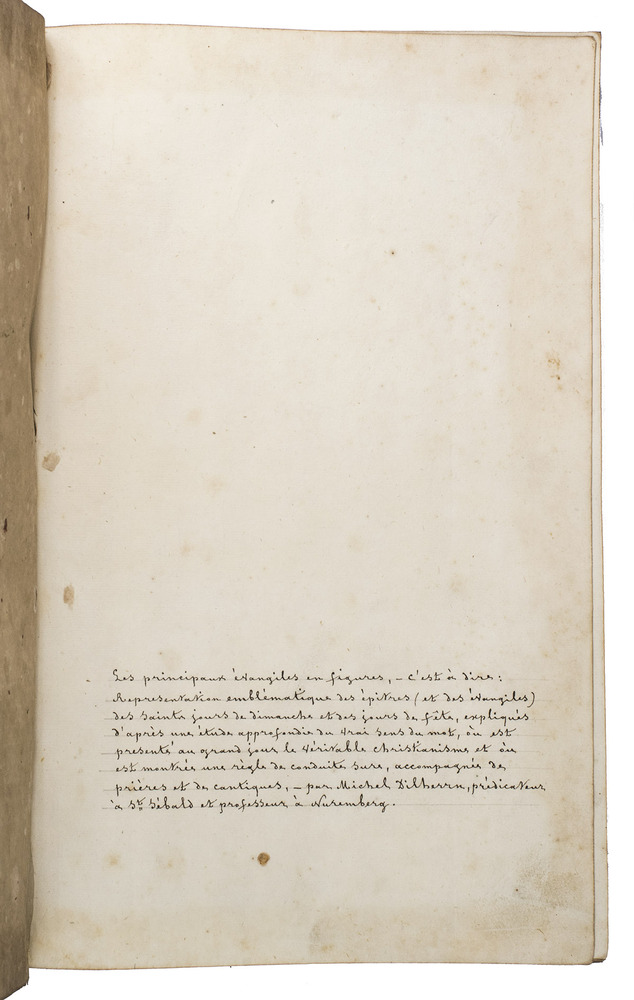 Les principaux évangiles en figures, – c'est à dire :
Représentation emblématique des épitres (et des évangiles)
des saints jours de dimanche et des jours de fête, expliqués
d'après une étude approfondie du vrai sens du mot, où est
presenté au grand jour le véritable christianisme et où
est montrée une règle de conduite sure, accompagnés de
prières et de cantiques, – par Michel Dilherrn, prédicateur
à St Sébald et professeur à Nuremberg.